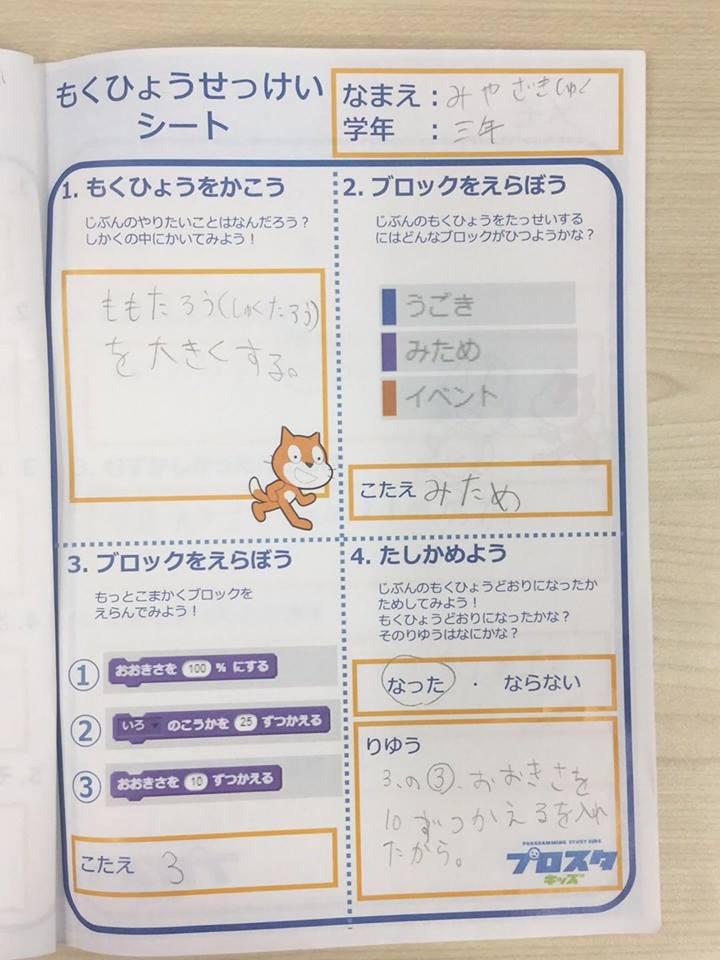 もくひょうせっけい
シート
なまえ：みやざきしゅく
学年 ：三年
1. もくひょうをかこう
じぶんのやりたいことはなんだろう？
しかくの中にかいてみよう！
ももたろう(しゅくたろう)
を大きくする。
2. ブロックをえらぼう
じぶんのもくひょうをたっせいする
にはどんなブロックがひつようかな？
うごき
みため
イベント
こたえ みため
3. ブロックをえらぼう
もっとこまかくブロックを
えらんでみよう！
① おおきさを 100 % にする
② いろ のこうかを 25 ずつかえる
③ おおきさを 10 ずつかえる
こたえ 3
4. たしかめよう
じぶんのもくひょうどおりになったか
ためしてみよう！
もくひょうどおりになったかな？
そのりゆうはなにかな？
なった ・ ならない
りゆう
3、の③、おおきさを
10ずつかえるを入れ
たから。
PROGRAMMING STUDY KIDS
プロスタ
キッズ